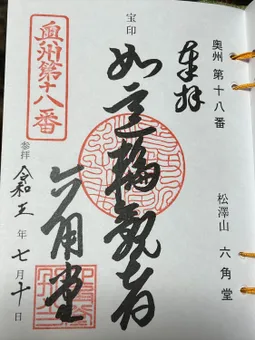 奉拝
奥州 第十八番
松澤山 六角堂
宝印
如意輪観音
六角堂
奥州第十八番
参拝 令和五年七月十日